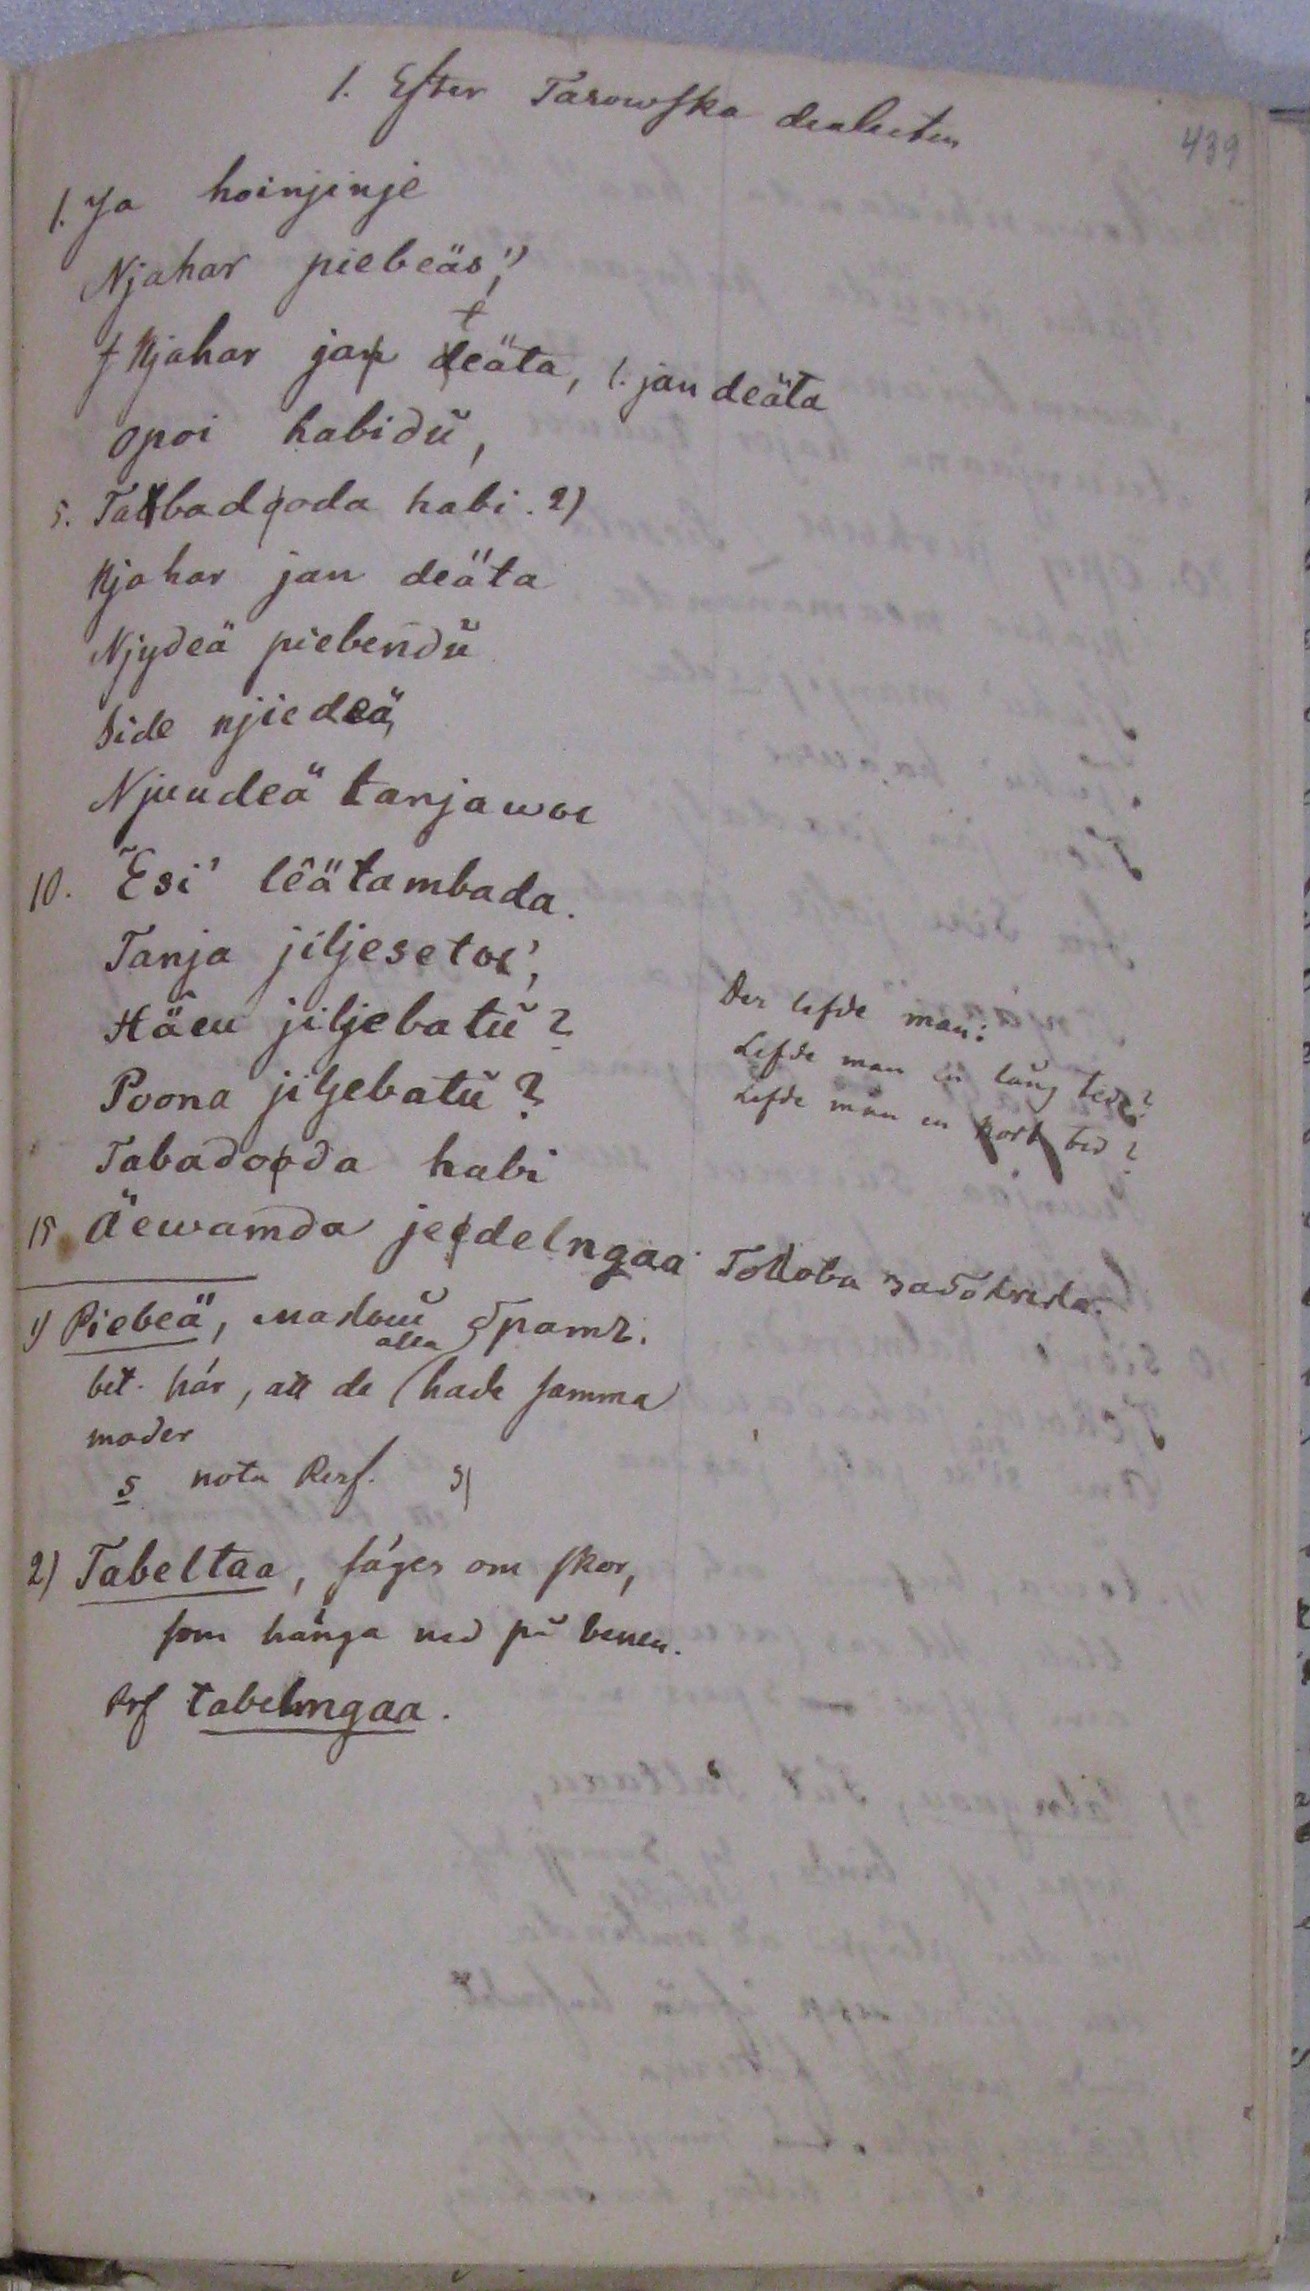 1. Efter Tasowska dialecten
439
1. Ja hoinjinje
Njahar piebeäs,¹⁾
Njahar jan teäta, l. jan deäta
opoi habidŭ,
5. Tabadoda habi. 2)
Njahar jan deäta
Njydeä piebendŭ
Side njiedeä,
Njuudeä tanjawoe
10. Esi' lêätambada.
Tanja jiljesetoe',
Häeu jiljebatŭ?
Poona jiljebatŭ?
Tabadoda habi
15 Äewamda jedelngaa
Der lefde man:
Lefde man en lång tid?
Lefde man en kort tid?
1) Piebeä, малый братъ.
bet. här, att de alla hade samma
moder
s nota Perf.
2) Tabeltaa, säges om skor,
som hänga ned på benen.
Prf tabelmgaa.